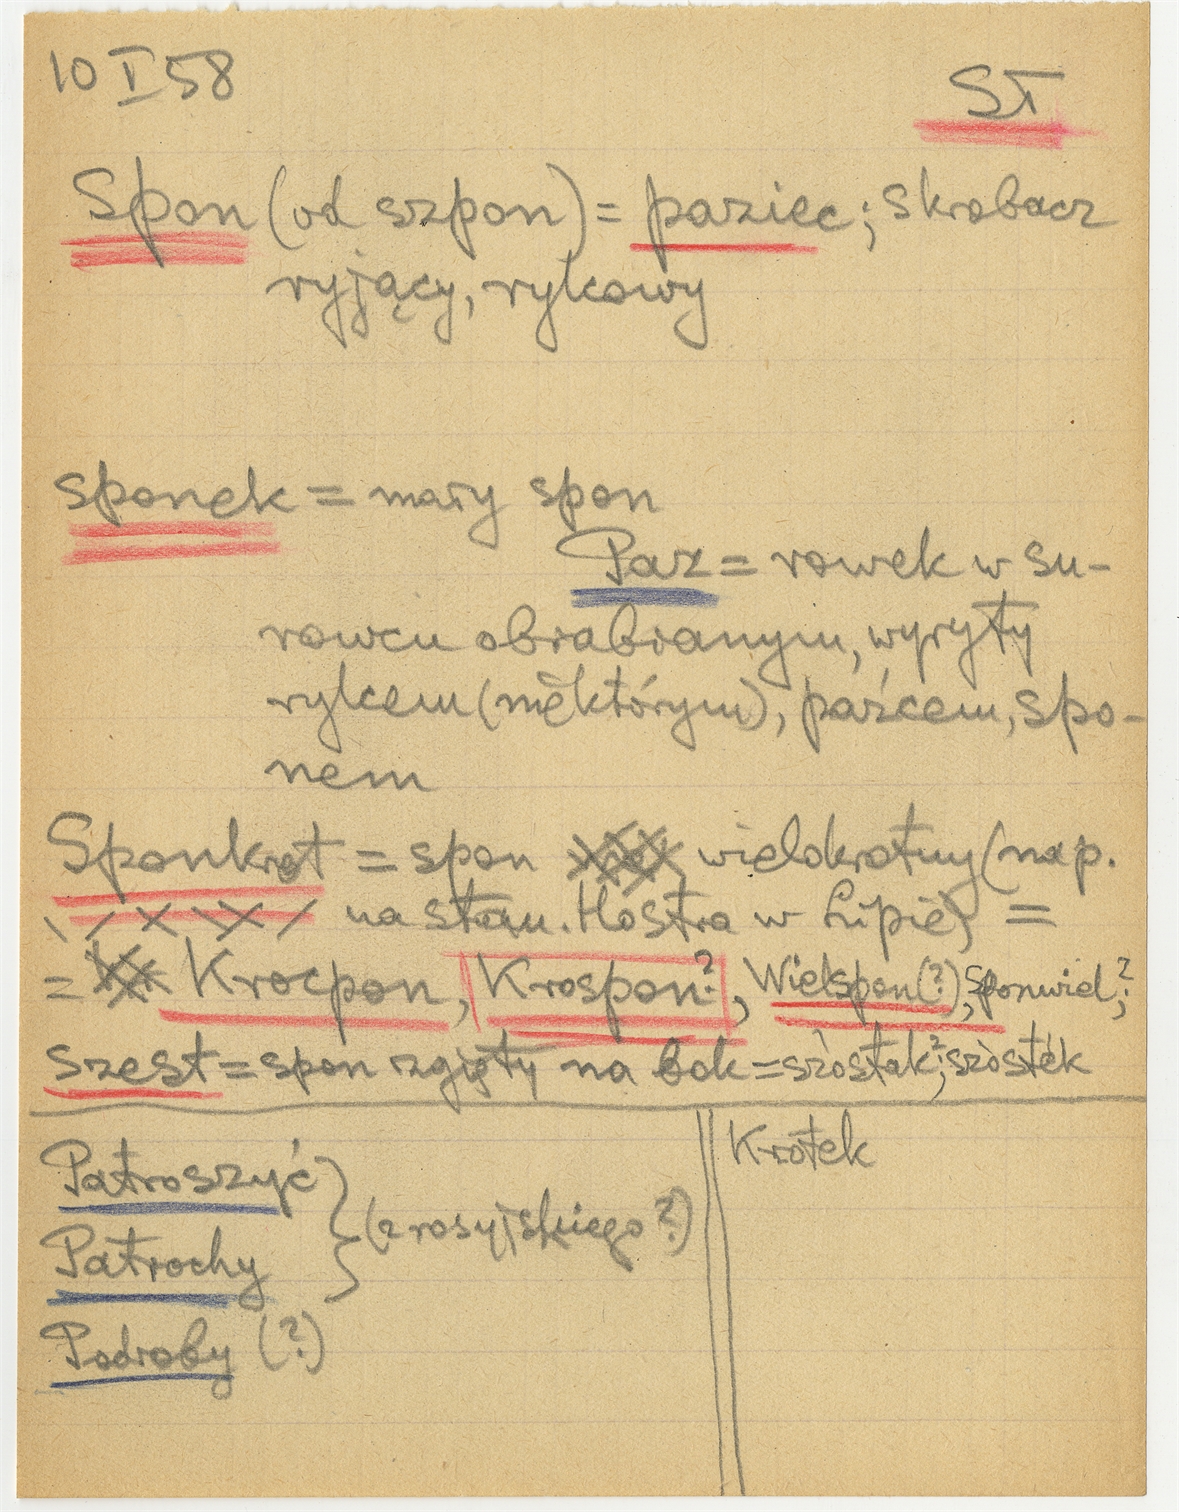 10 I 58
SŁ
Spon (od szpon) = paziec; skrobacz
ryjący, rylcowy
sponek = mały spon
Paz = rowek w su-
rowcu obrabianym, wyryty
rylcem (niektórym), paźcem, spo-
nem
Sponkrot = spon wielokrotny (nap.
na stan. Hostra w Lipie) =
= Krocpon, Krospon?, Wielspon(?), Sponwiel?;
Szest = spon zgięty na bok = szóstak?; szóstek
Patroszyć
(z rosyjskiego?)
Patrochy
Podroby (?)
Krotek